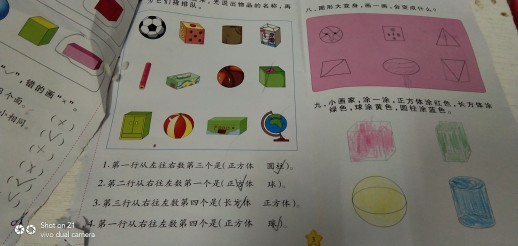 先说出物品的名称，再
它们排排队。
"√"，错的画"×"。
个面。
小相同。
1.第一行从左往右数第三个是(正方体 圆柱)。
2.第二行从右往左数第一个是(正方体 球)。
3.第三行从右往左数第四个是(长方体 正方体)。
4.第一行从右往左数第四个是(正方体 球)。
八、图形大变身，画一画，会变成什么？
九、小画家，涂一涂，正方体涂红色，长方体涂
绿色，球涂黄色，圆柱涂蓝色。
3
Shot on Z1
vivo dual camera